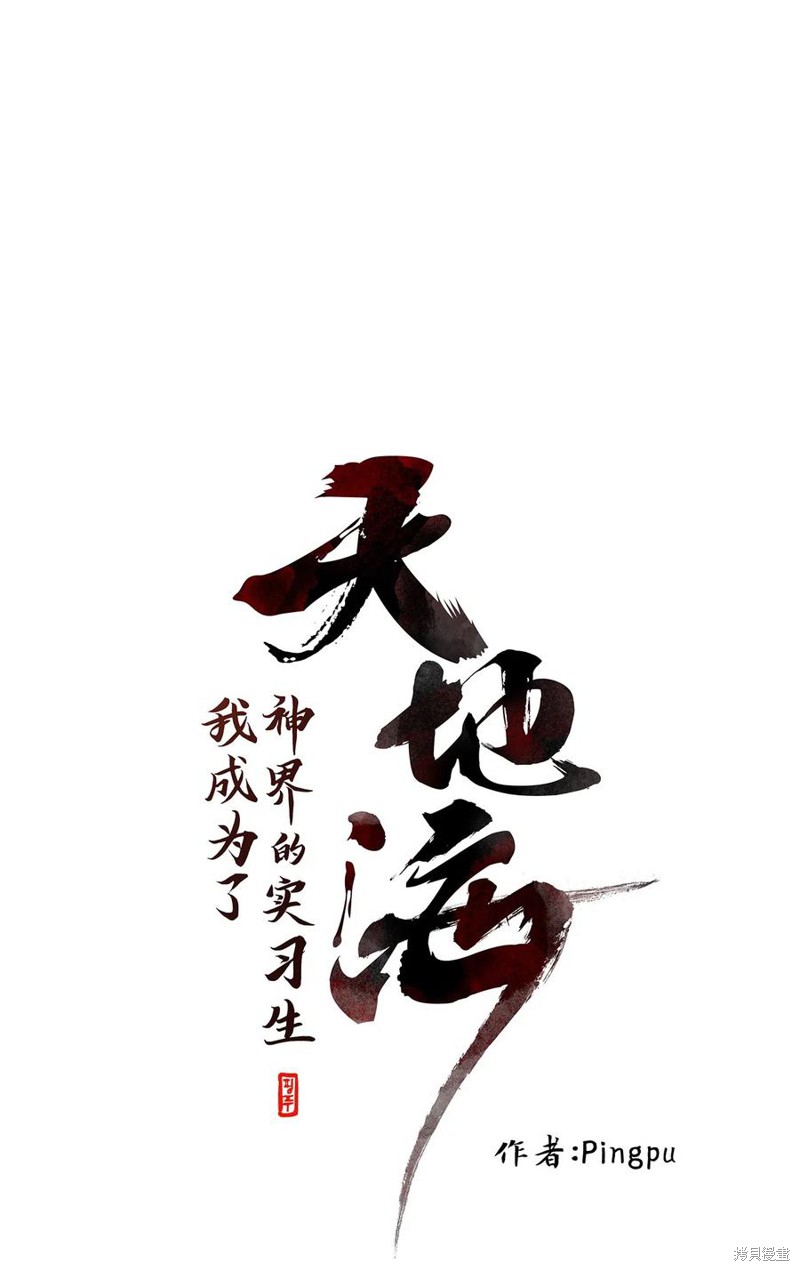 天地海
神界的实习生
我成为了
핑주
作者:Pingpu
拷貝漫畫